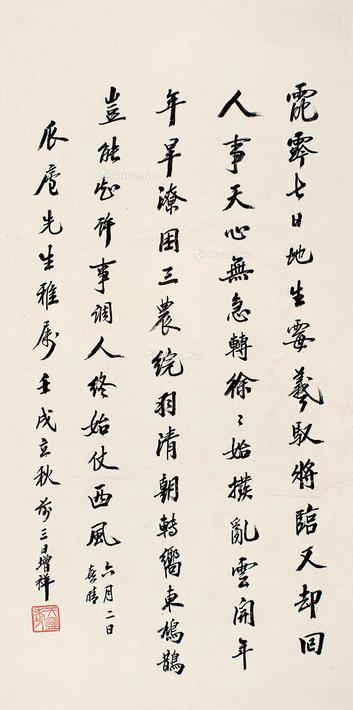 霓雩七日地生霉羲馭將臨又却回
人事天心無急轉徐〻始撥亂雲開年
年旱潦困三農統羽清朝轉嚮東鳩鵲
豈能知許事調人終始仗西風
六月二日
喜晴
瓜廬先生雅屬壬戌立秋前三日增祥